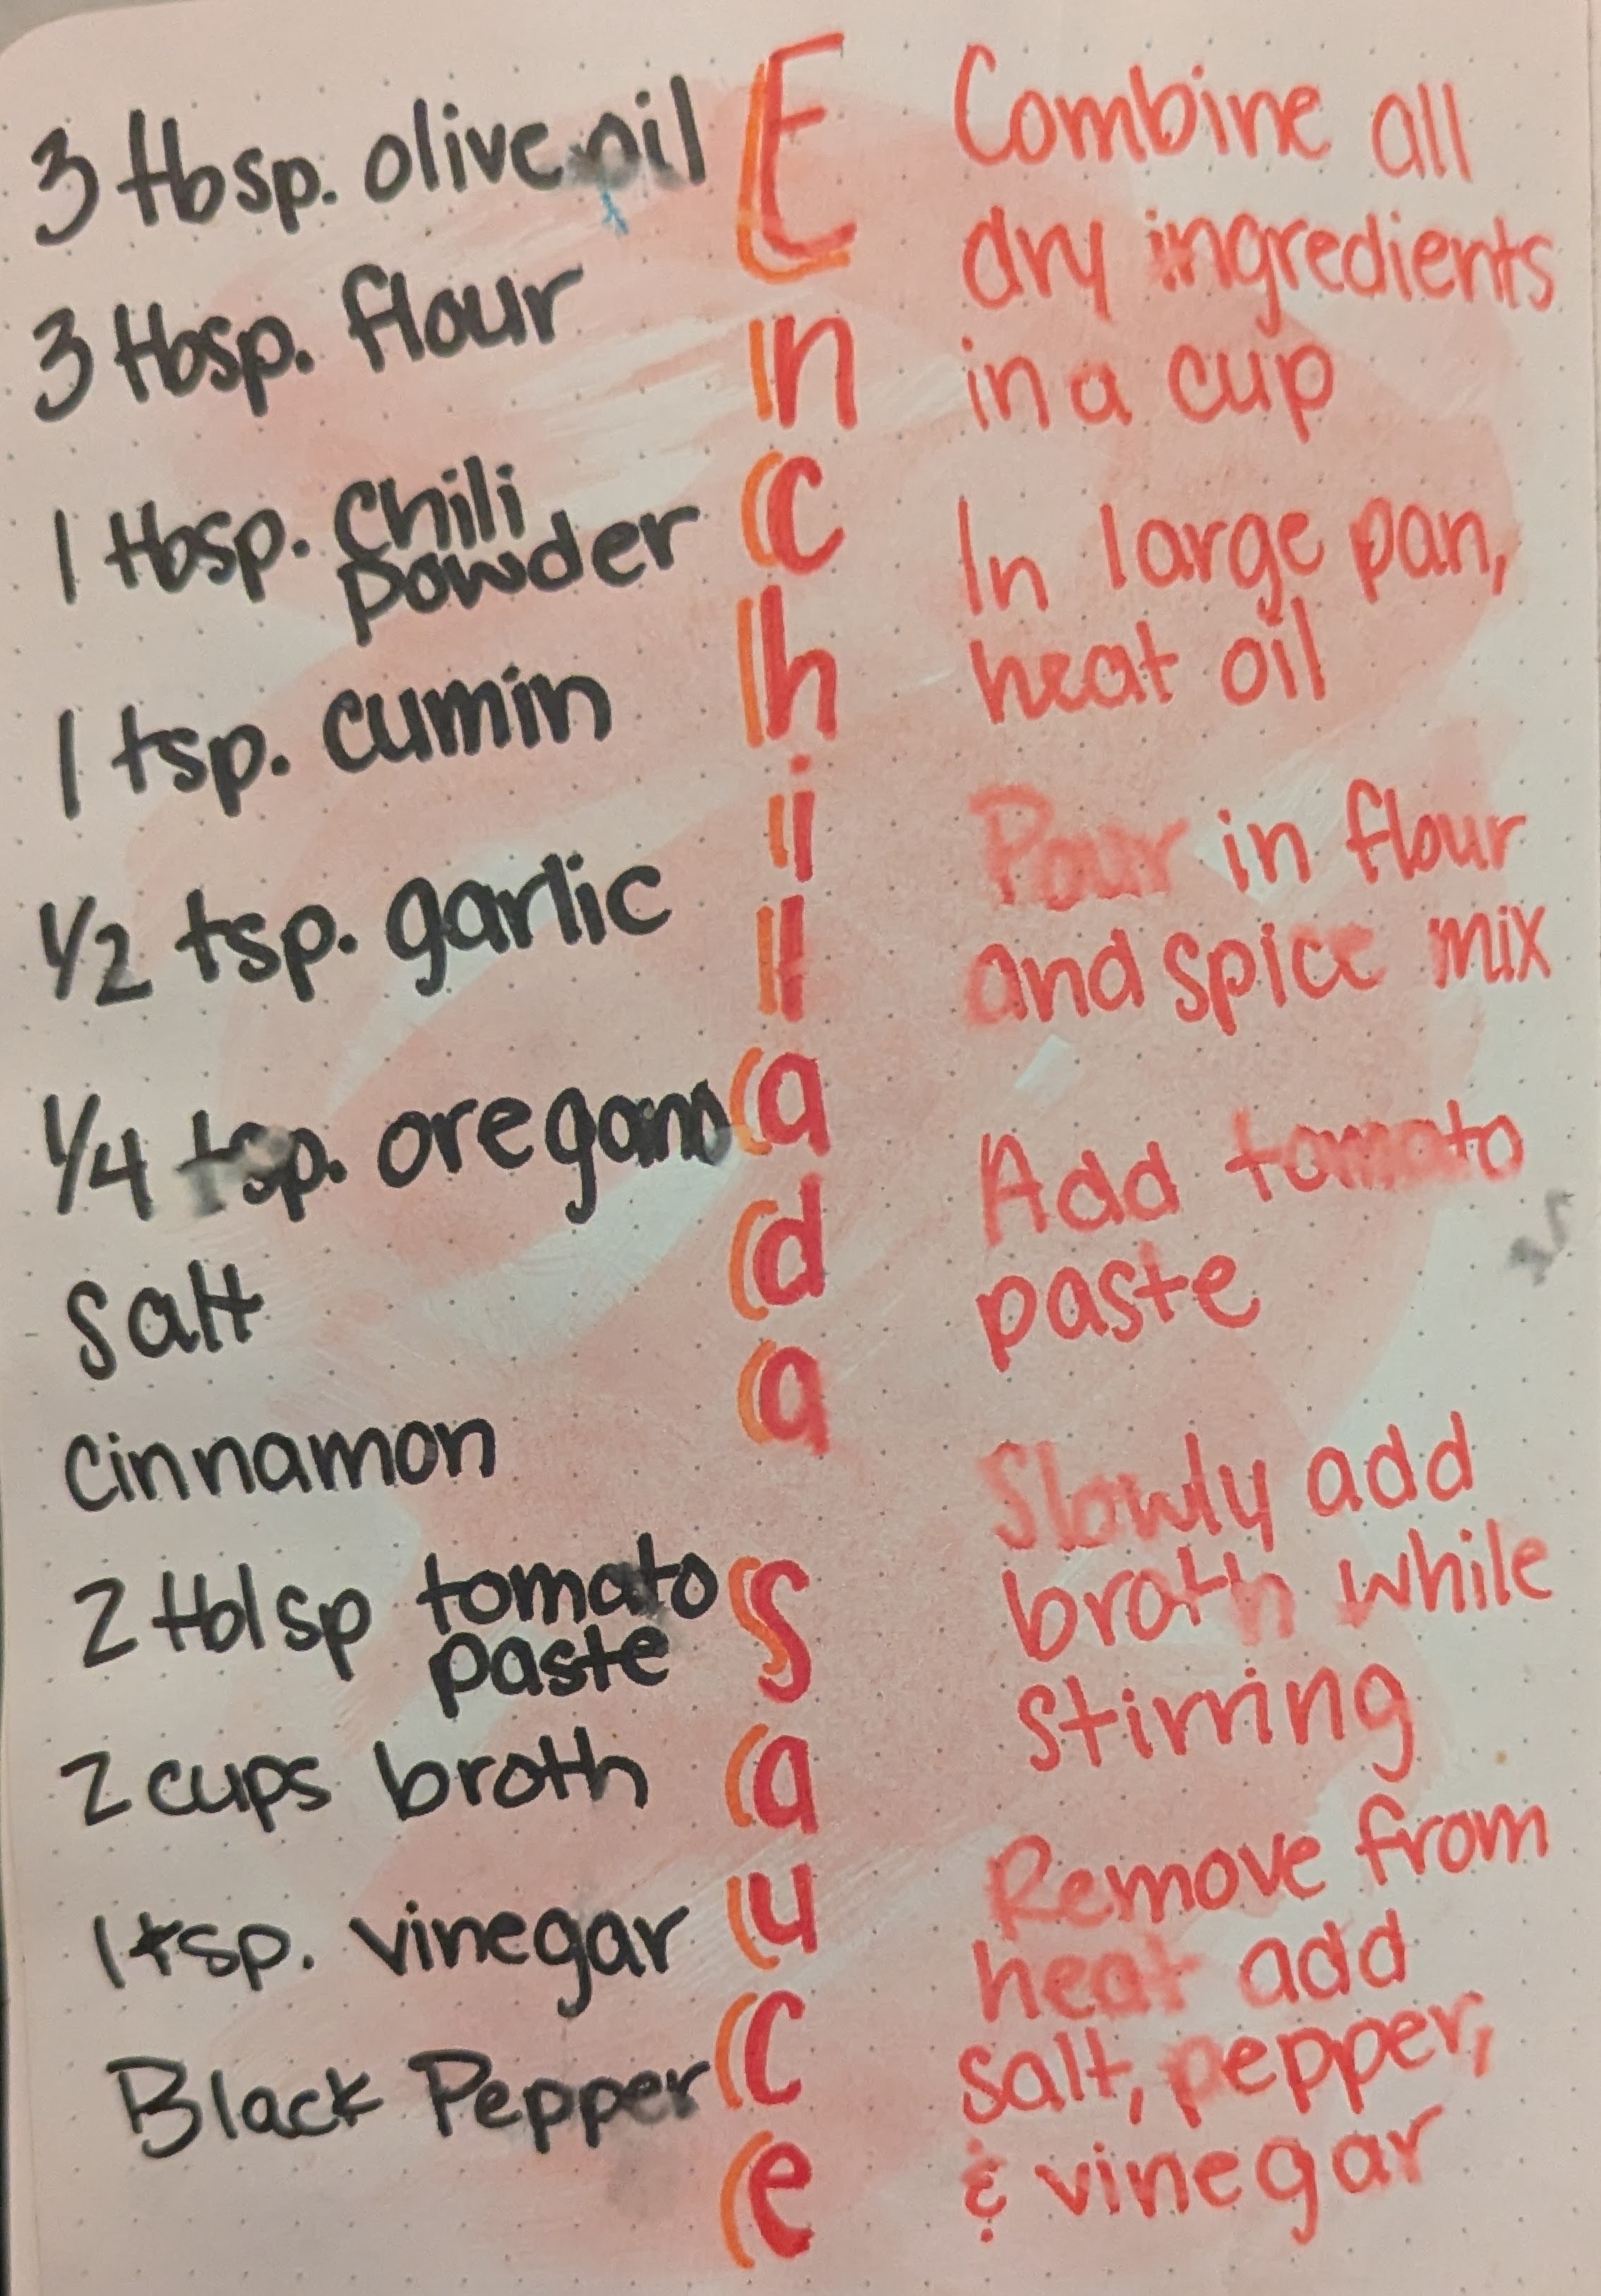 3 tbsp. olive oil
3 tbsp. flour
1 tbsp. chili
powder
1 tsp. cumin
1/2 tsp. garlic
1/4 tsp. oregano
Salt
Cinnamon
2 tblsp tomato
paste
2 cups broth
1 tsp. vinegar
Black Pepper
Enchilada Sauce
Combine all
dry ingredients
in a cup
In large pan,
heat oil
Pour in flour
and spice mix
Add tomato
paste
Slowly add
broth while
stirring
Remove from
heat add
salt, pepper,
& vinegar